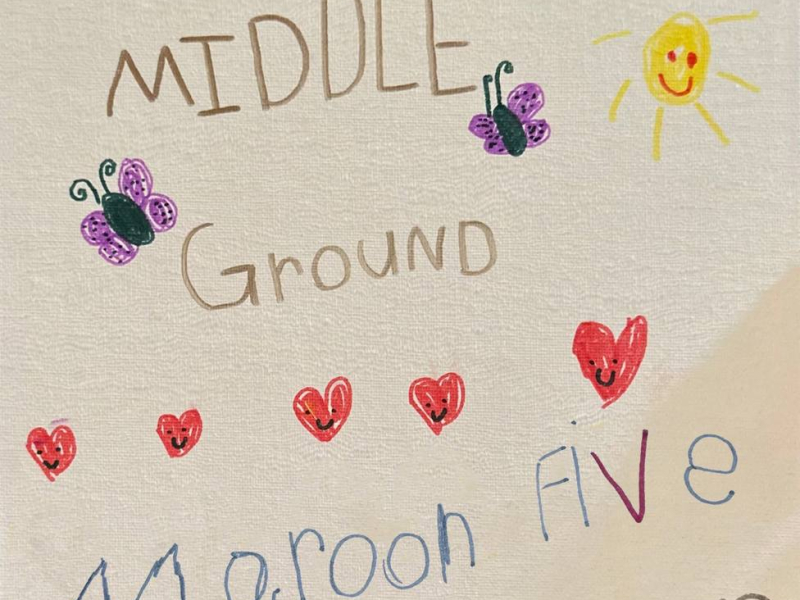 MIDDLE
GROUND
Maroon Five